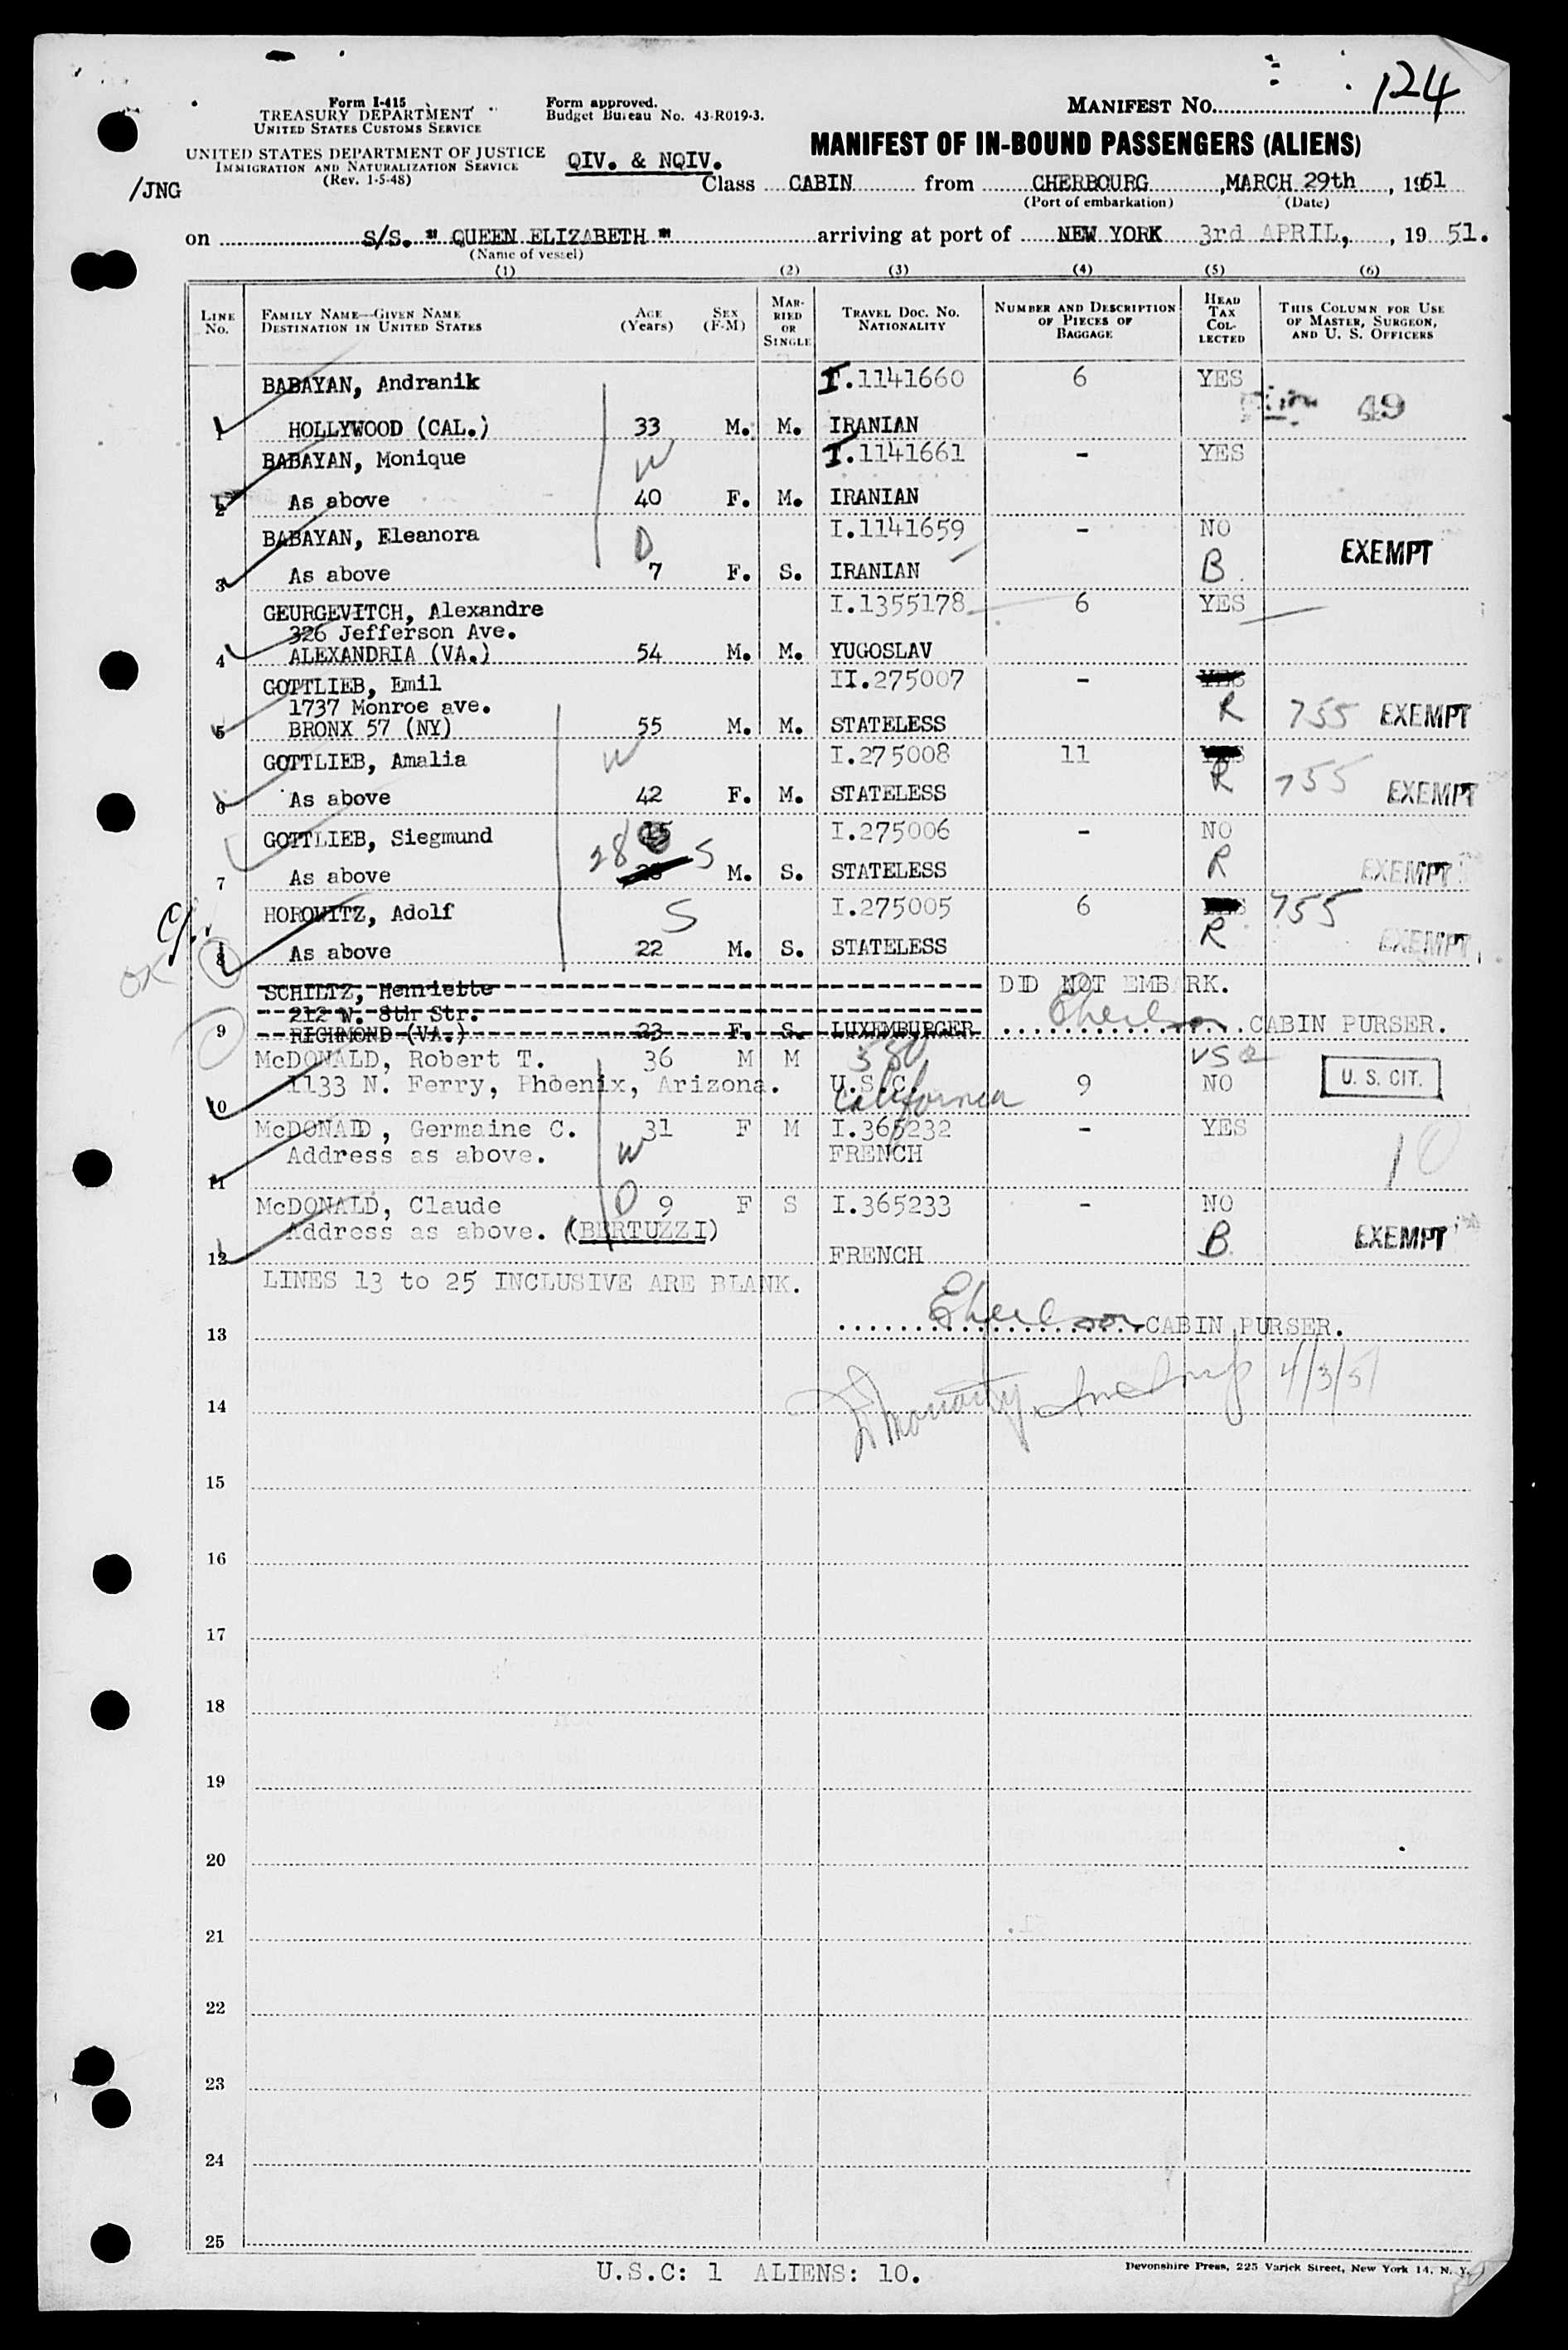 Form I-415
TREASURY DEPARTMENT
UNITED STATES CUSTOMS SERVICE
UNITED STATES DEPARTMENT OF JUSTICE
IMMIGRATION AND NATURALIZATION SERVICE
(Rev. 1-5-48)
/JNG
Form approved.
Budget Bureau No. 43-R019-3.
QIV. & NQIV.
MANIFEST NO. 124
MANIFEST OF IN-BOUND PASSENGERS (ALIENS)
Class CABIN from CHERBOURG, MARCH 29th, 1951
(Port of embarkation) (Date)
on S/S. " QUEEN ELIZABETH " arriving at port of NEW YORK 3rd APRIL, , 19 51.
(Name of vessel)
(1) (2) (3) (4) (5) (6)
LINE NO. FAMILY NAME—GIVEN NAME DESTINATION IN UNITED STATES AGE (Years) SEX (F-M) MARRIED OR SINGLE TRAVEL DOC. NO. NATIONALITY NUMBER AND DESCRIPTION OF PIECES OF BAGGAGE HEAD TAX COLLECTED THIS COLUMN FOR USE OF MASTER, SURGEON, AND U. S. OFFICERS
BABAYAN, Andranik I.1141660 6 YES
49
1 HOLLYWOOD (CAL.) 33 M. M. IRANIAN
BABAYAN, Monique W I.1141661 - YES
2 As above 40 F. M. IRANIAN
BABAYAN, Eleanora D I.1141659 - NO
EXEMPT
3 As above 7 F. S. IRANIAN B
GEURGEVITCH, Alexandre I.1355178 6 YES
326 Jefferson Ave.
4 ALEXANDRIA (VA.) 54 M. M. YUGOSLAV
GOTTLIEB, Emil II.275007 - YES
1737 Monroe ave. R 755 EXEMPT
5 BRONX 57 (NY) 55 M. M. STATELESS
GOTTLIEB, Amalia W I.275008 11 YES
R 755 EXEMPT
6 As above 42 F. M. STATELESS
GOTTLIEB, Siegmund 15 I.275006 - NO
28 S
7 As above M. S. STATELESS R EXEMPT
HOROWITZ, Adolf S I.275005 6 755
OK 8 As above 22 M. S. STATELESS R EXEMPT
SCHILTZ, Henriette DID NOT EMBARK.
212 W. 8th Str.
9 RICHMOND (VA.) 23 F. S. LUXEMBURGER CABIN PURSER.
McDONALD, Robert T. 36 M M 580
1133 N. Ferry, Phoenix, Arizona. U.S.C. 9 NO U. S. CIT.
10 California
McDONALD, Germaine C. 31 F M I.365232 - YES
Address as above. W FRENCH 10
11
McDONALD, Claude D 9 F S I.365233 - NO
Address as above. (BERTUZZI) B EXEMPT
12 FRENCH
LINES 13 to 25 INCLUSIVE ARE BLANK.
13 CABIN PURSER.
4/3/51
14
15
16
17
18
19
20
21
22
23
24
25
U.S.C: 1 ALIENS: 10.
Devonshire Press, 225 Varick Street, New York 14, N. Y.